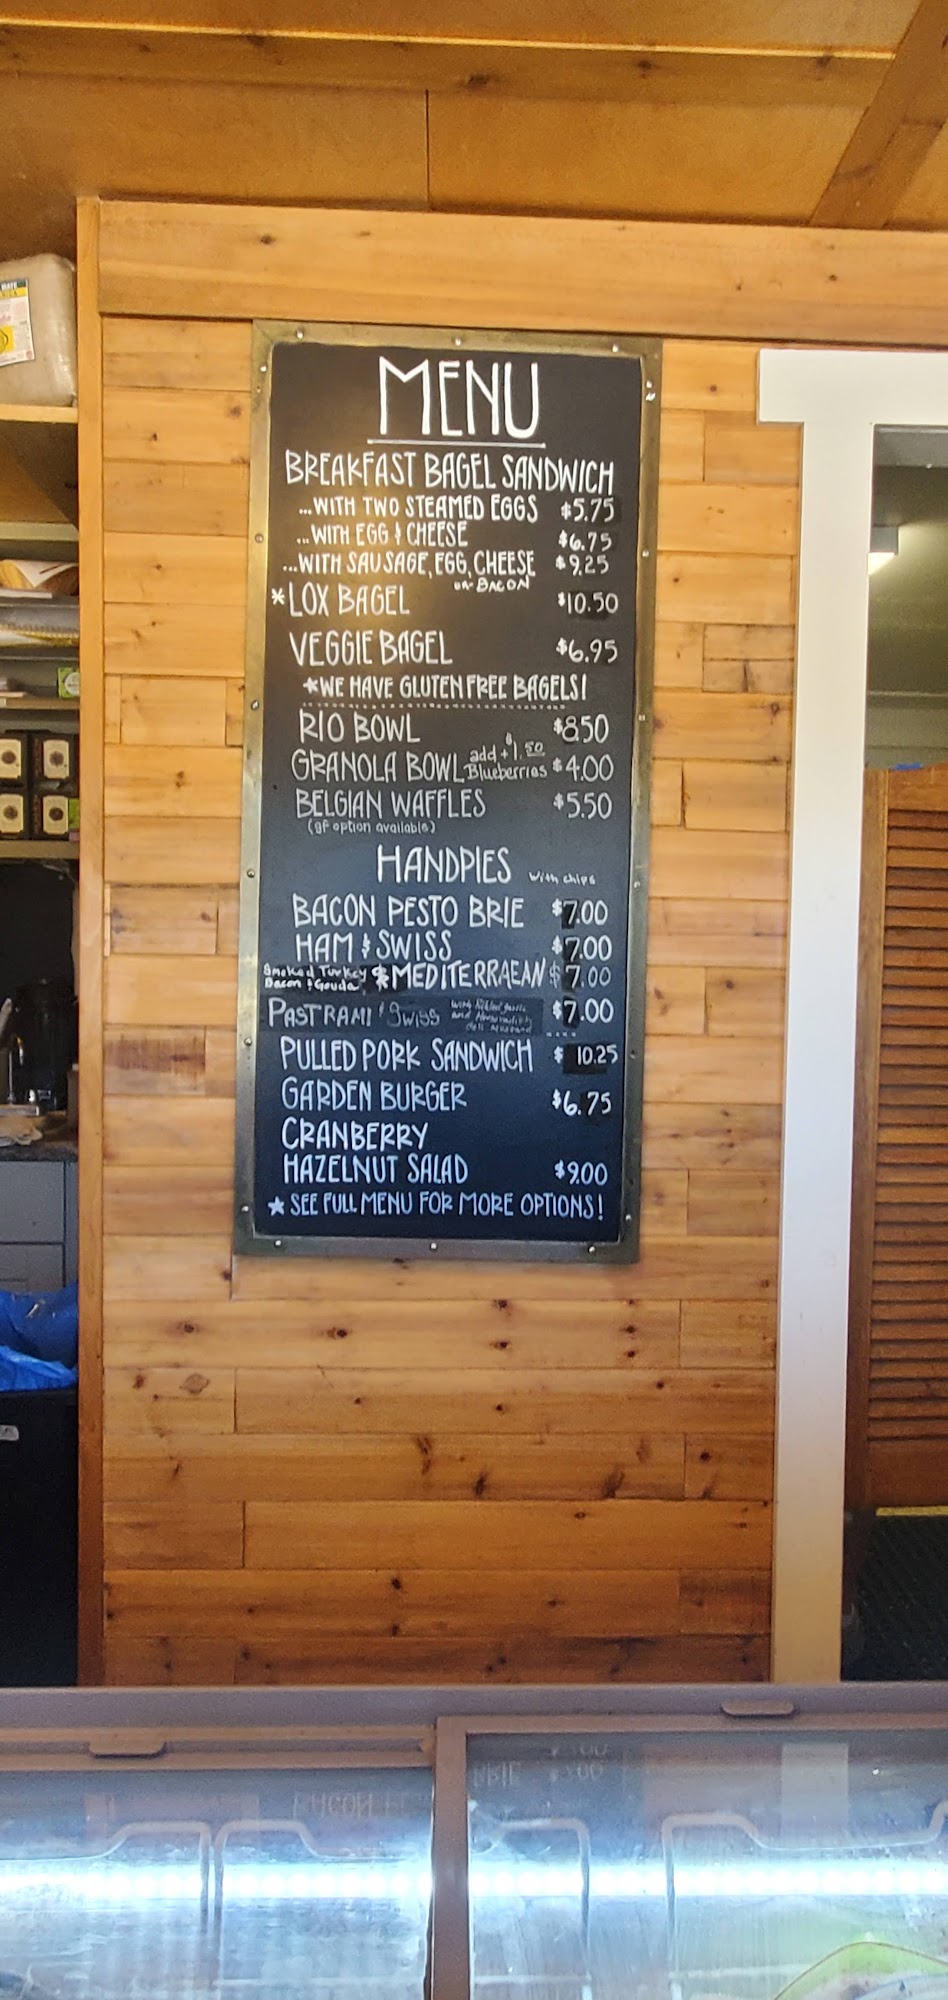 MENU
BREAKFAST BAGEL SANDWICH
...WITH TWO STEAMED EGGS $5.75
...WITH EGG & CHEESE $6.75
...WITH SAUSAGE, EGG, CHEESE $9.25
or BACON
*LOX BAGEL $10.50
VEGGIE BAGEL $6.95
*WE HAVE GLUTEN FREE BAGELS!
RIO BOWL $8.50
GRANOLA BOWL add + $1.50 Blueberries $4.00
BELGIAN WAFFLES $5.50
(gf option available)
HANDPIES with chips
BACON PESTO BRIE $7.00
HAM & SWISS $7.00
Smoked Turkey Bacon & Gouda & *MEDITERRAEAN $7.00
PASTRAMI & SWISS with and deli mustard $7.00
PULLED PORK SANDWICH $10.25
GARDEN BURGER $6.75
CRANBERRY
HAZELNUT SALAD $9.00
* SEE FULL MENU FOR MORE OPTIONS!